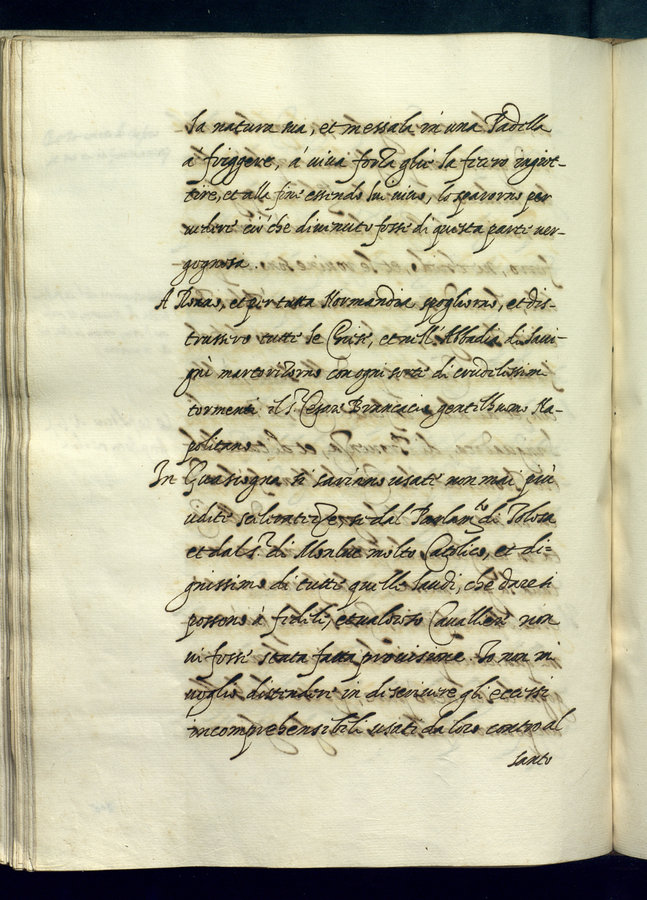 la natura sua, et messala in una Padella
á friggere, á viva forza glie la ficero ingiot-
tire, et alla fine essendo lui vivo, lo spararno per
vedere ció che divenuto fosse di questa parte ver-
gognosa.
A Roano, et per tutta Normandia spogliorno, et dis-
trussero tutte le Chiese, et nell'Abbadia di Savi-
gni martorizorno con ogni sorte di crudelissimi
tormenti il S.r Cesare Brancacio gentilhuomo Na-
politano
In Guascogna si sariano usate non mai piú
udite sceleratezze, se dal Parlam.to di Tolosa
et dal S.r di Monluc molto Catolico, et di-
gnissimo di tutte quelle laudi, che dare si
possono á fidele, et valoroso Cavalliere non
vi fosse stata fatta provisione. Io non mi
voglio distendere in descrivere gli eccessi
incomprehensibili usati da loro contro al
santo